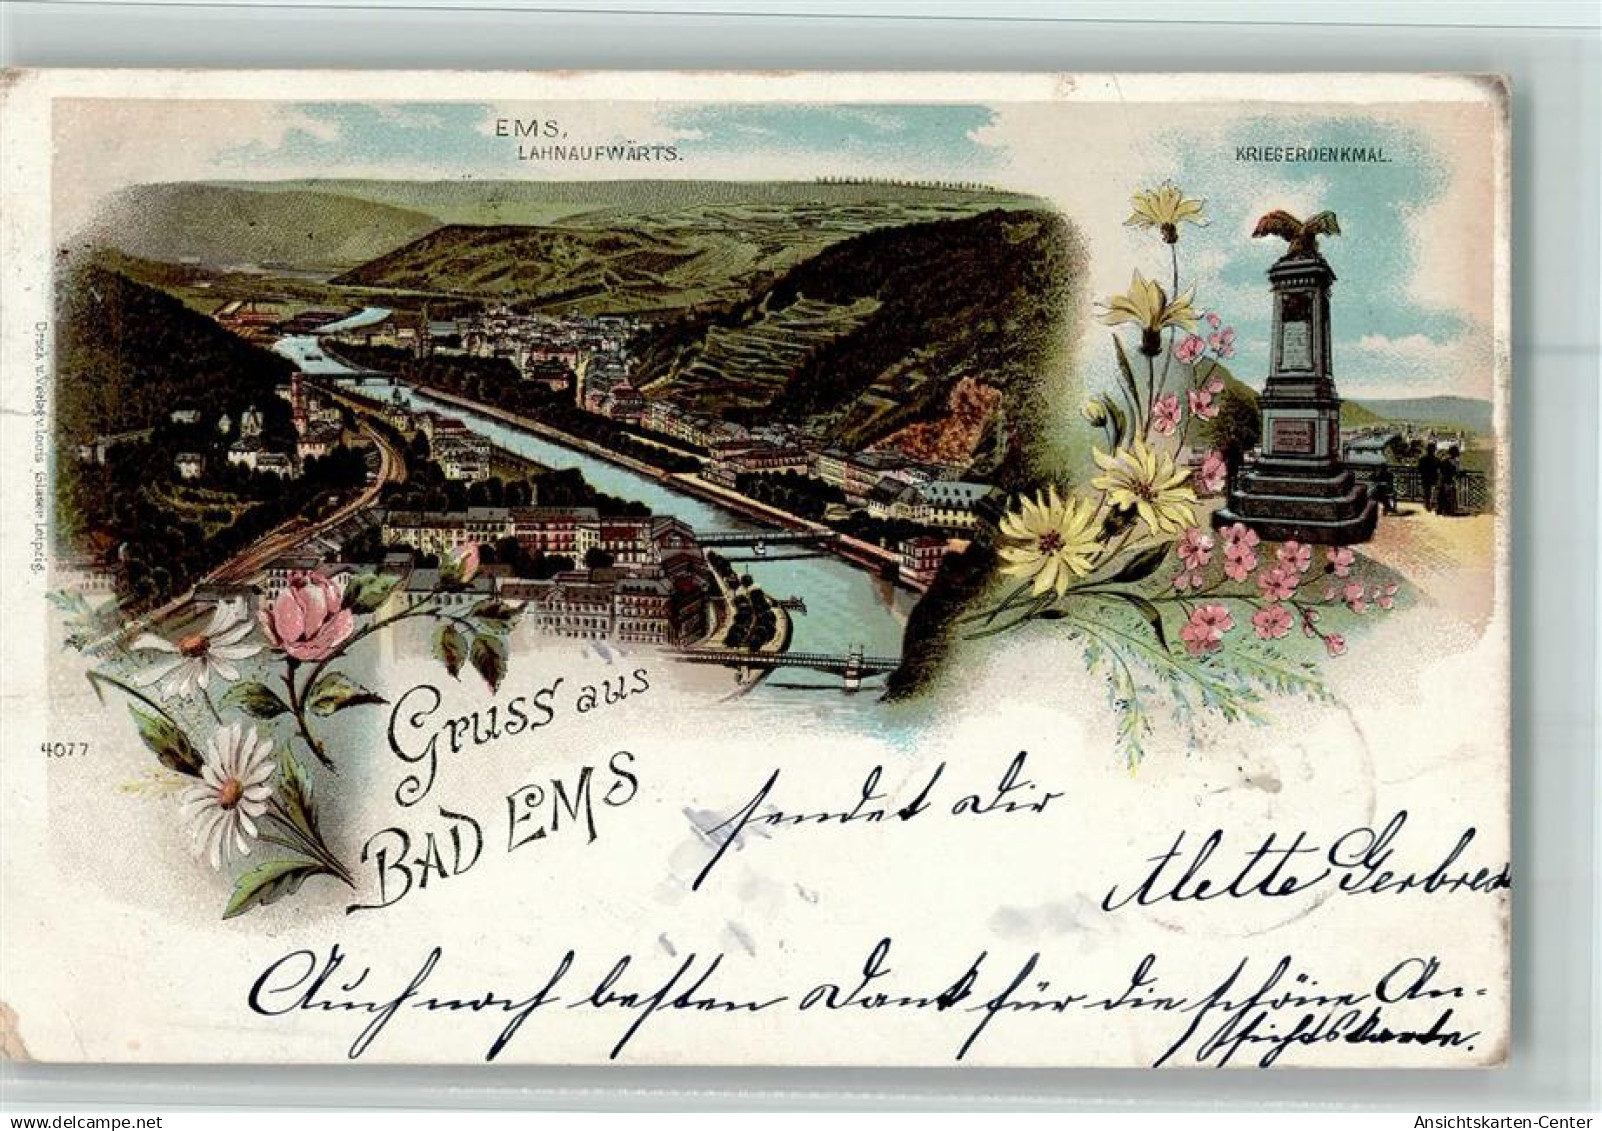 EMS,
LAHNAUFWÄRTS.
KRIEGERDENKMAL.
Druck u. Verlag v. Louis Glaser Leipzig.
4077
Gruss aus
BAD EMS
sendet Dir
Alette Gerbres
Auch noch besten Dank für die schöne An-
sichtskarte.
Ansichtskarten-Center